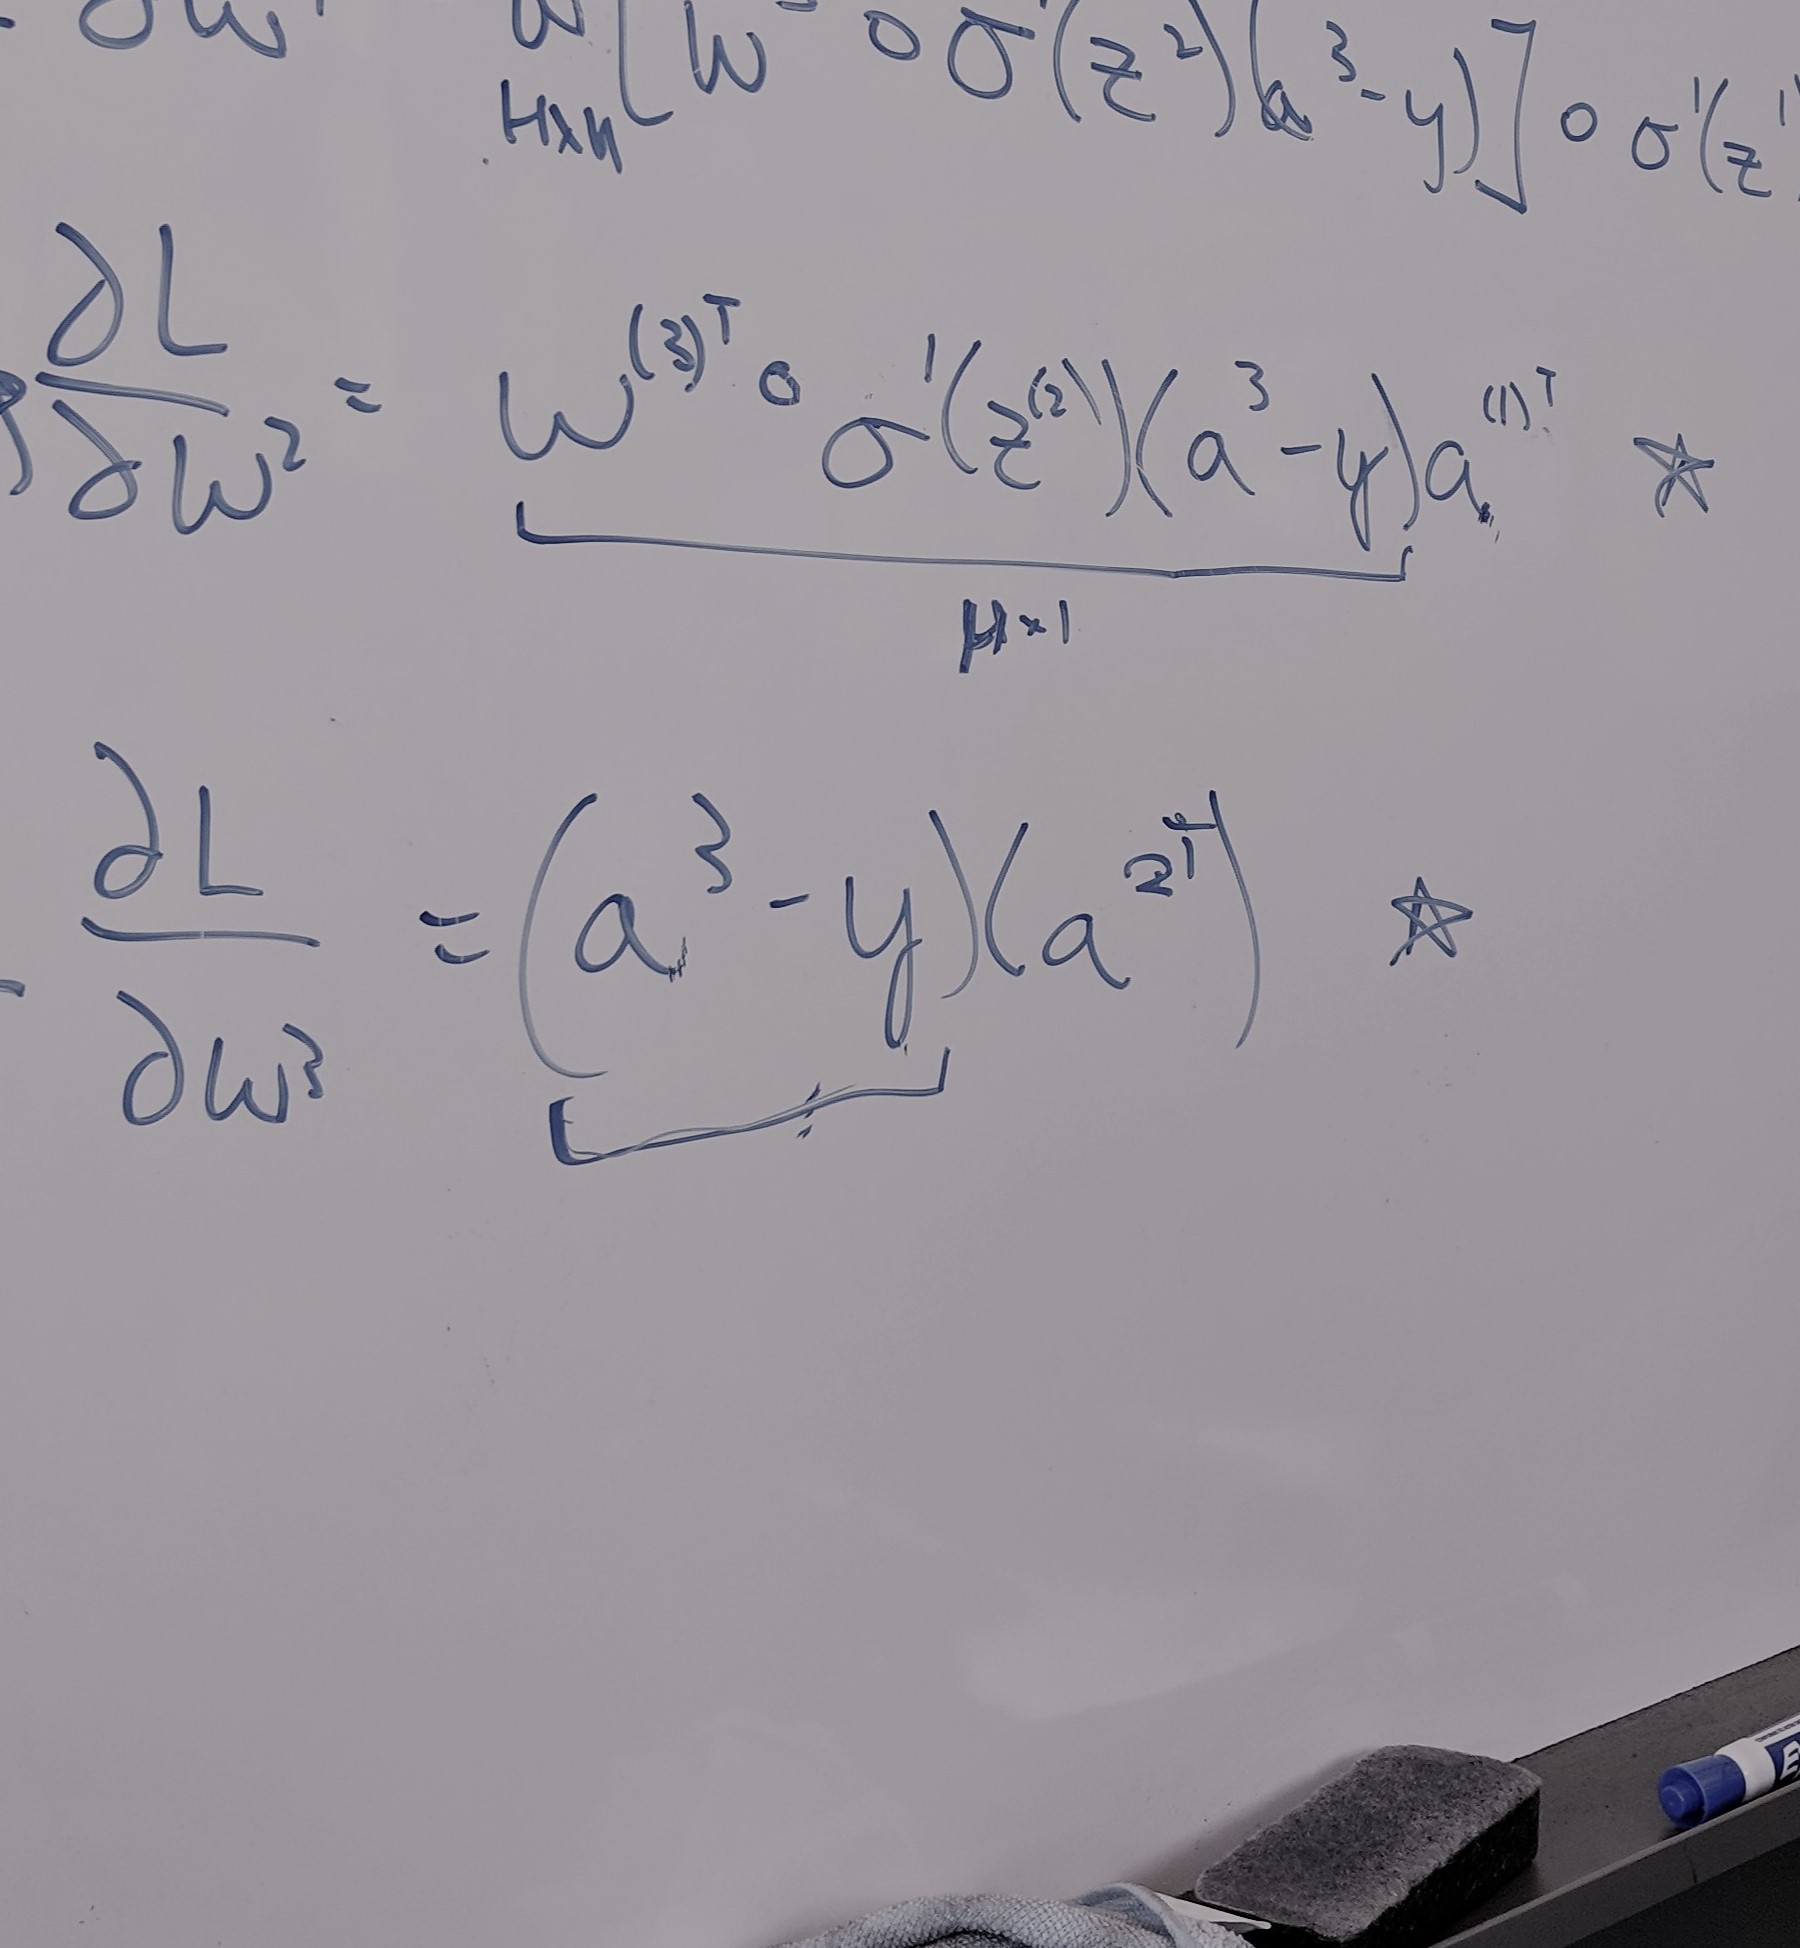 ∂W¹ W[W ∘ σ'(z²)(a³-y)] ∘ σ'(z¹)
H×H
∂L/∂W² = W⁽³⁾ᵀ ∘ σ'(z⁽²⁾)(a³-y)a⁽¹⁾ᵀ ☆
H×1
∂L/∂W³ = (a³-y)(a²ᵀ) ☆